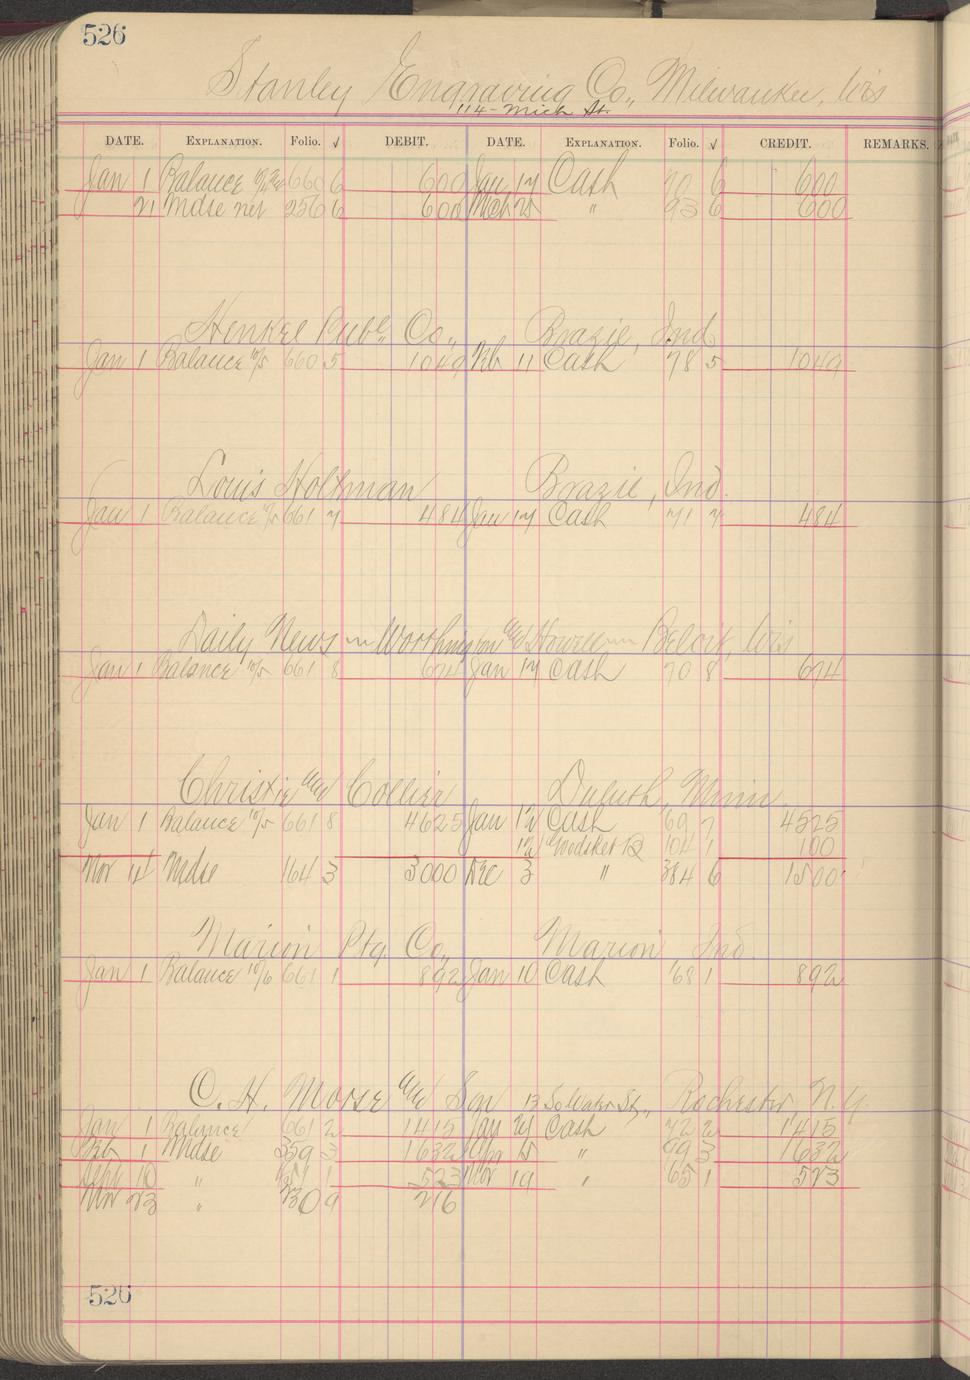 526
Stanley Engraving Co., Milwaukee, Wis
114 - Mich St.
DATE. EXPLANATION. Folio. √ DEBIT. DATE. EXPLANATION. Folio. √ CREDIT. REMARKS.
Jan 1 Balance 660 6 600 Jan 17 Cash 70 6 600
21 Mdse net 256 6 600 Mch 25 " 93 6 600
Henkel Publ. Co., Brazil, Ind
Jan 1 Balance 10/5 660 5 1049 Feb 11 Cash 78 5 1049
Louis Holtman Brazil, Ind.
Jan 1 Balance 661 7 484 Jan 17 Cash 71 7 484
Daily News Worthington and Howell Beloit, Wis
Jan 1 Balance 10/5 661 8 674 Jan 17 Cash 70 8 674
Christie and Collier Duluth, Minn
Jan 1 Balance 10/5 661 8 4625 Jan 12 Cash 69 7 4525
12 104 1 100
Nov 14 Mdse 164 3 3000 Dec 3 " 384 6 1500
Marion Ptg. Co., Marion Ind.
Jan 1 Balance 10/6 661 1 892 Jan 10 Cash 68 1 892
C. H. Morse and Son 13 So Water St., Rochester N.Y.
Jan 1 Balance 661 2 1415 Jan 21 Cash 72 2 1415
Feb 1 Mdse 359 3 1632 Apr 15 " 99 3 1632
10 " 1 523 Nov 19 " 65 1 523
Nov 23 " 230 9 216
526